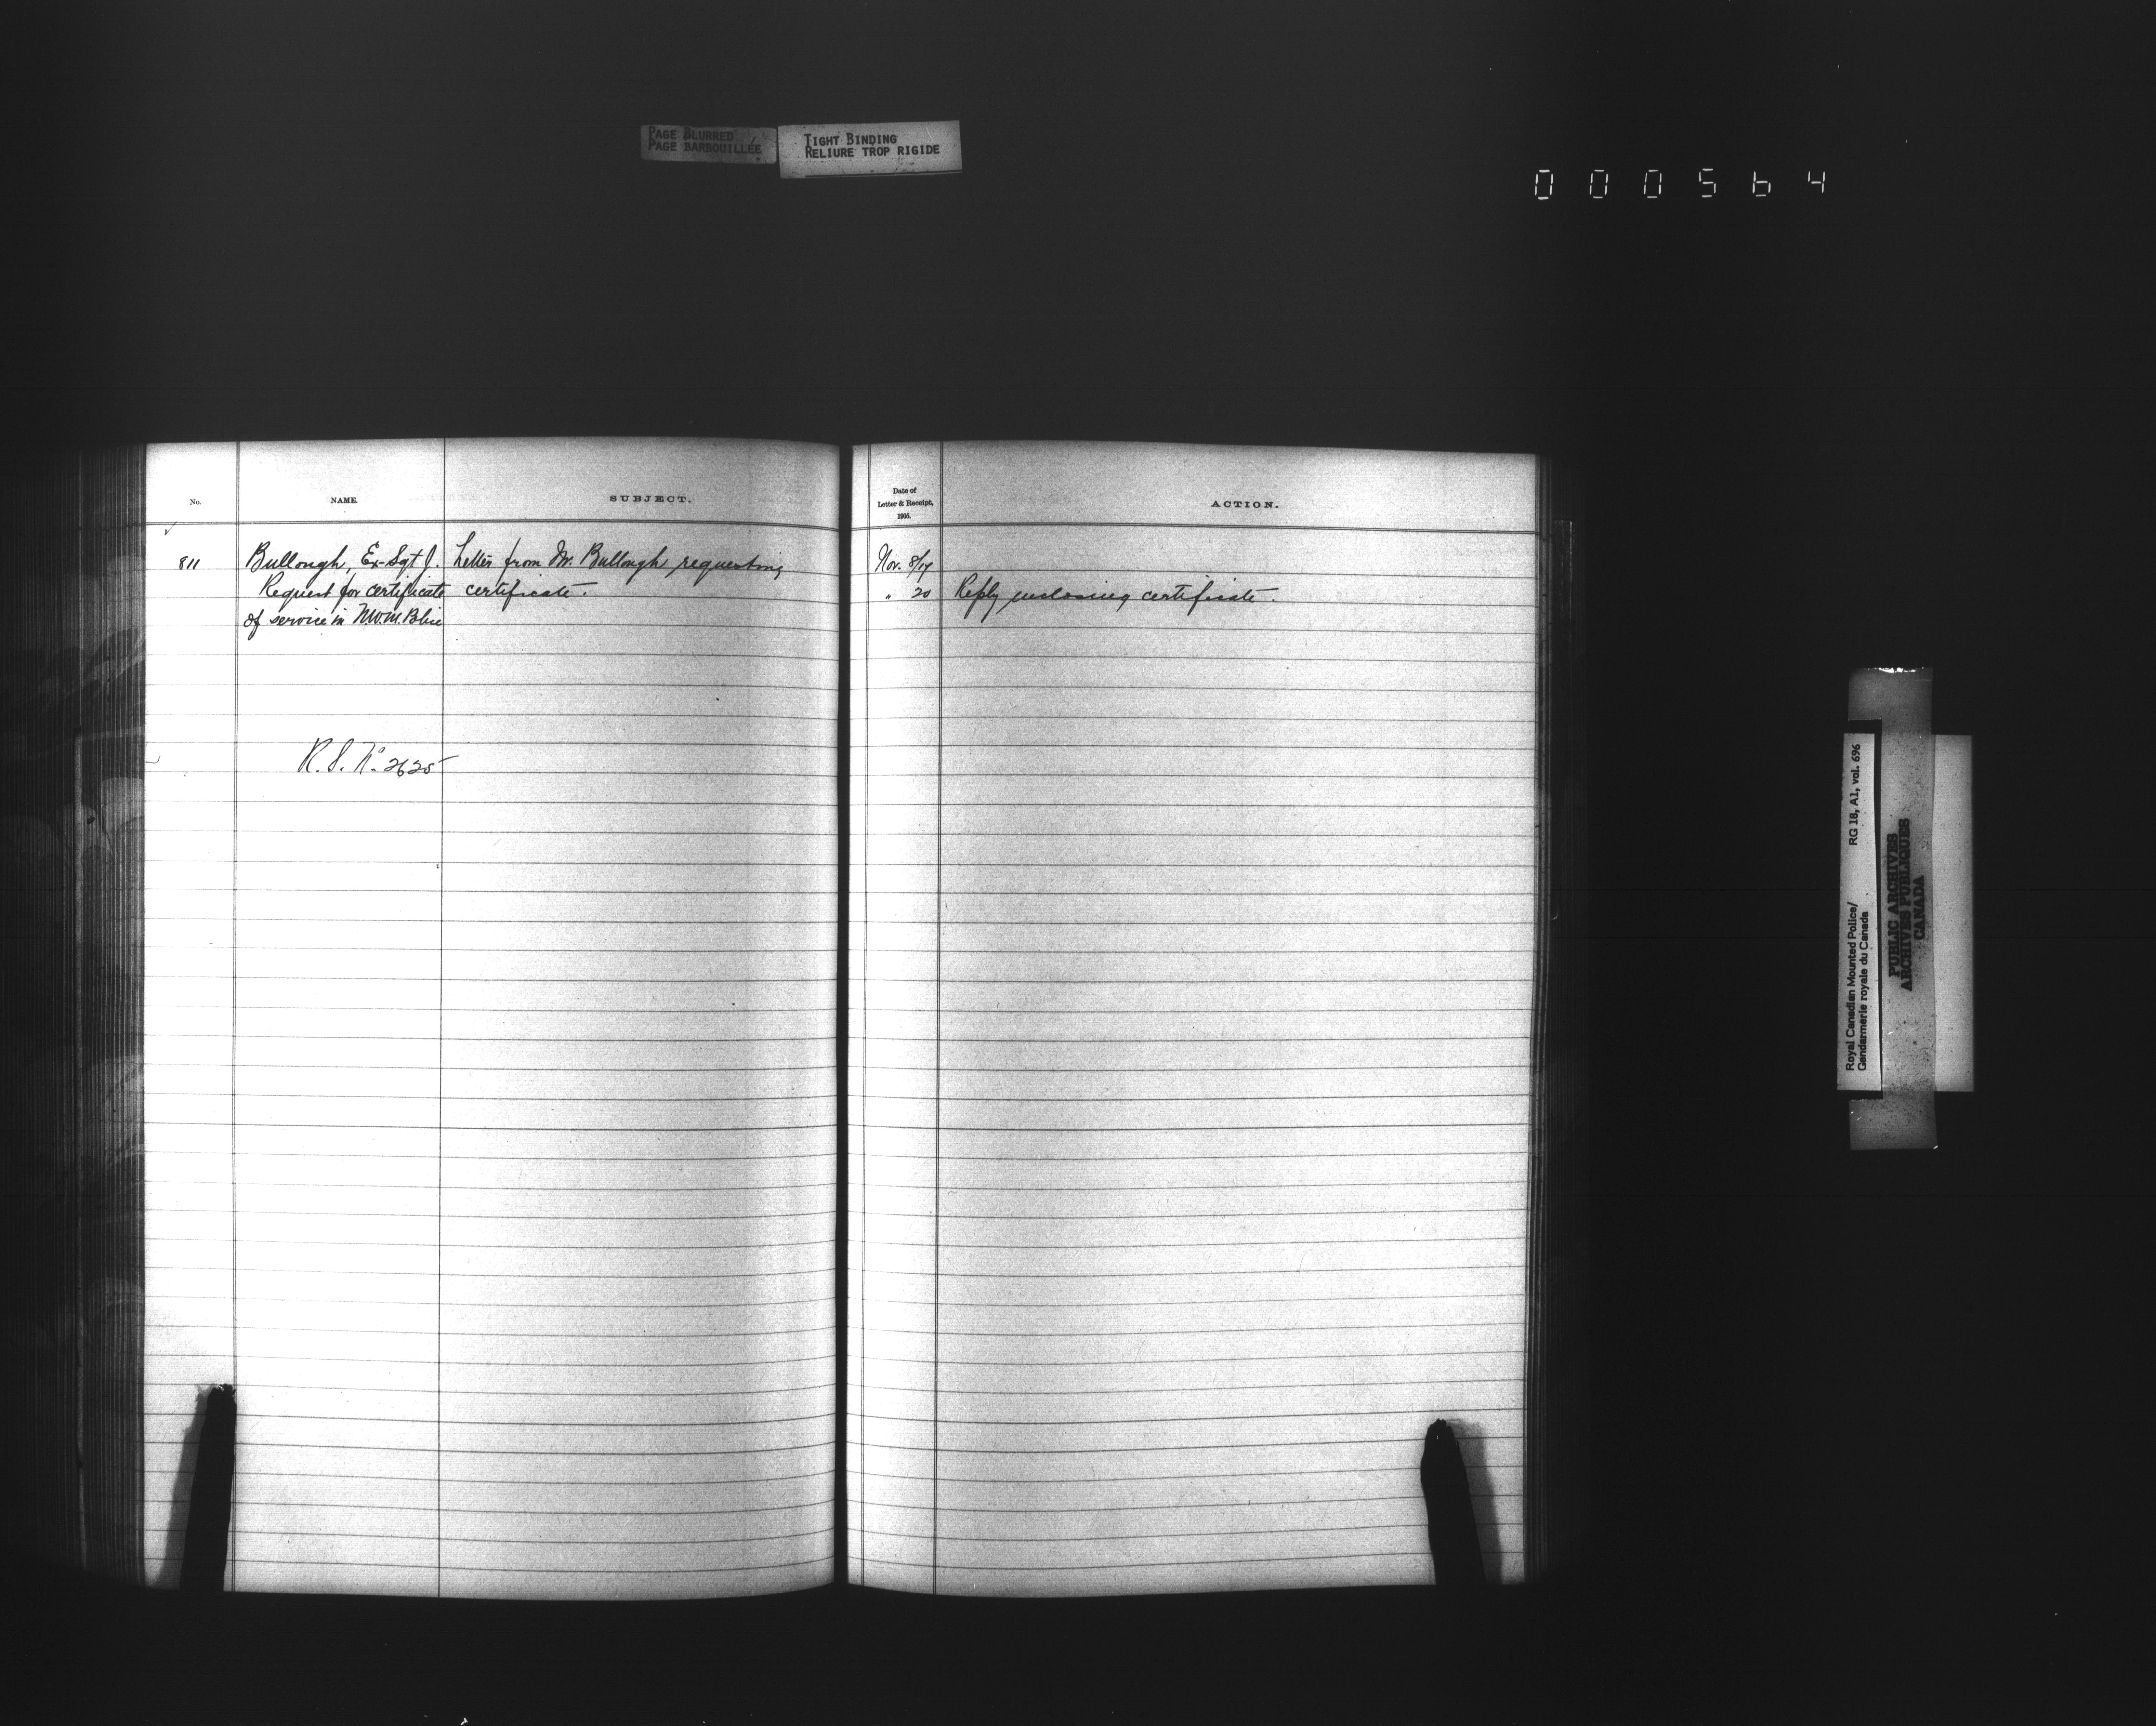 PAGE BLURRED
PAGE BARBOUILLÉE
TIGHT BINDING
RELIURE TROP RIGIDE
000564
No.
NAME.
SUBJECT.
Date of
Letter & Receipt,
1905.
ACTION.
811
Bullough, Ex-Sgt J.
Letter from Mr. Bullough requesting
Nov. 8/17
Request for certificate
certificate.
" 20
Reply enclosing certificate.
of service in N.W.M. Police
R.S. No. 2625
Royal Canadian Mounted Police/
Gendarmerie royale du Canada
RG 18, A1, vol. 696
PUBLIC ARCHIVES
ARCHIVES PUBLIQUES
CANADA